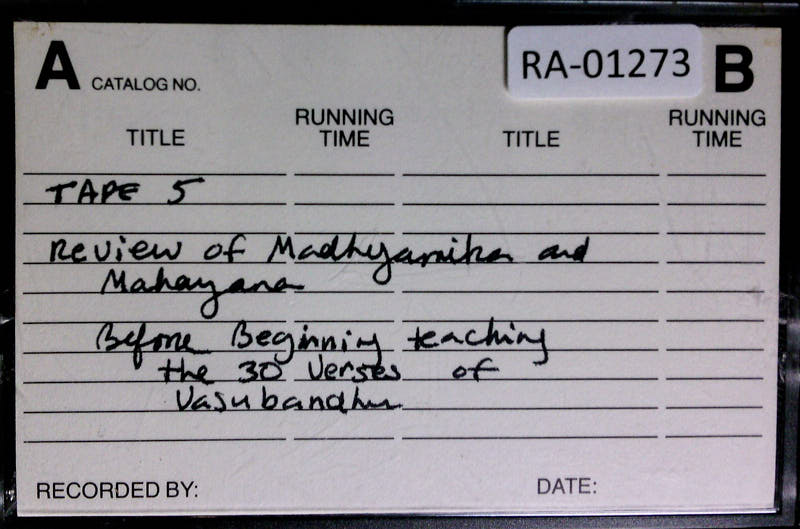 A CATALOG NO. RA-01273 B
TITLE RUNNING TIME TITLE RUNNING TIME
TAPE 5
Review of Madhyamika and
Mahayana
Before Beginning teaching
the 30 Verses of
Vasubandhu
RECORDED BY: DATE: